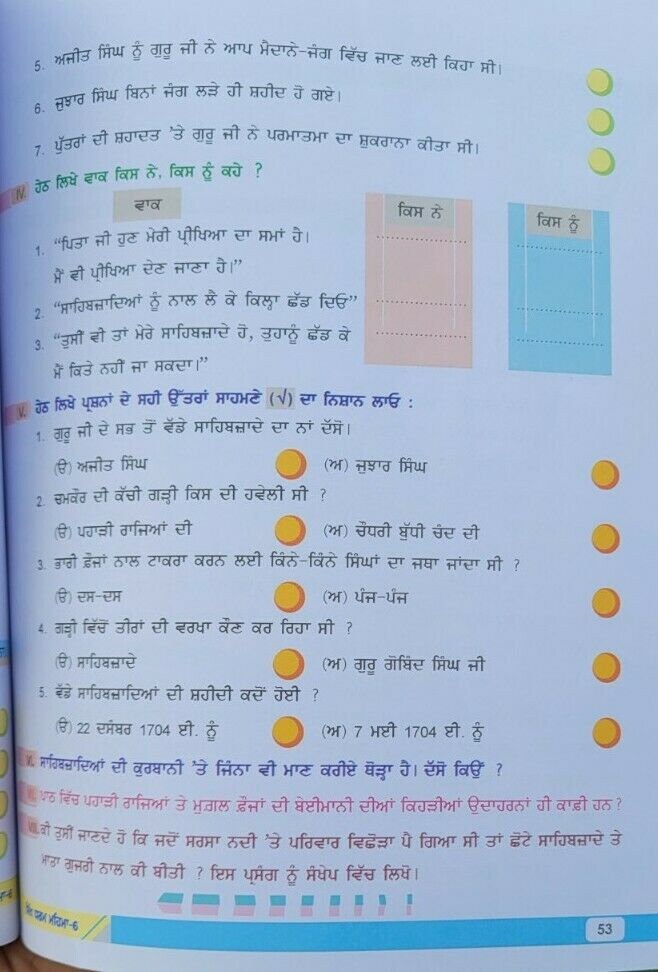 5. ਅਜੀਤ ਸਿੰਘ ਨੂੰ ਗੁਰੂ ਜੀ ਨੇ ਆਪ ਮੈਦਾਨੇ-ਜੰਗ ਵਿੱਚ ਜਾਣ ਲਈ ਕਿਹਾ ਸੀ।
6. ਜੁਝਾਰ ਸਿੰਘ ਬਿਨਾਂ ਜੰਗ ਲੜੇ ਹੀ ਸ਼ਹੀਦ ਹੋ ਗਏ।
7. ਪੁੱਤਰਾਂ ਦੀ ਸ਼ਹਾਦਤ 'ਤੇ ਗੁਰੂ ਜੀ ਨੇ ਪਰਮਾਤਮਾ ਦਾ ਸ਼ੁਕਰਾਨਾ ਕੀਤਾ ਸੀ।
IV. ਹੇਠ ਲਿਖੇ ਵਾਕ ਕਿਸ ਨੇ, ਕਿਸ ਨੂੰ ਕਹੇ ?
ਵਾਕ ਕਿਸ ਨੇ ਕਿਸ ਨੂੰ
1. “ਪਿਤਾ ਜੀ ਹੁਣ ਮੇਰੀ ਪ੍ਰੀਖਿਆ ਦਾ ਸਮਾਂ ਹੈ।
ਮੈਂ ਵੀ ਪ੍ਰੀਖਿਆ ਦੇਣ ਜਾਣਾ ਹੈ।”
2. “ਸਾਹਿਬਜ਼ਾਦਿਆਂ ਨੂੰ ਨਾਲ ਲੈ ਕੇ ਕਿਲ੍ਹਾ ਛੱਡ ਦਿਓ”
3. “ਤੁਸੀਂ ਵੀ ਤਾਂ ਮੇਰੇ ਸਾਹਿਬਜ਼ਾਦੇ ਹੋ, ਤੁਹਾਨੂੰ ਛੱਡ ਕੇ
ਮੈਂ ਕਿਤੇ ਨਹੀਂ ਜਾ ਸਕਦਾ।”
V. ਹੇਠ ਲਿਖੇ ਪ੍ਰਸ਼ਨਾਂ ਦੇ ਸਹੀ ਉੱਤਰਾਂ ਸਾਹਮਣੇ (√) ਦਾ ਨਿਸ਼ਾਨ ਲਾਓ :
1. ਗੁਰੂ ਜੀ ਦੇ ਸਭ ਤੋਂ ਵੱਡੇ ਸਾਹਿਬਜ਼ਾਦੇ ਦਾ ਨਾਂ ਦੱਸੋ।
(ੳ) ਅਜੀਤ ਸਿੰਘ (ਅ) ਜੁਝਾਰ ਸਿੰਘ
2. ਚਮਕੌਰ ਦੀ ਕੱਚੀ ਗੜ੍ਹੀ ਕਿਸ ਦੀ ਹਵੇਲੀ ਸੀ ?
(ੳ) ਪਹਾੜੀ ਰਾਜਿਆਂ ਦੀ (ਅ) ਚੌਧਰੀ ਬੁੱਧੀ ਚੰਦ ਦੀ
3. ਭਾਰੀ ਫ਼ੌਜਾਂ ਨਾਲ ਟਾਕਰਾ ਕਰਨ ਲਈ ਕਿੰਨੇ-ਕਿੰਨੇ ਸਿੰਘਾਂ ਦਾ ਜਥਾ ਜਾਂਦਾ ਸੀ ?
(ੳ) ਦਸ-ਦਸ (ਅ) ਪੰਜ-ਪੰਜ
4. ਗੜ੍ਹੀ ਵਿੱਚੋਂ ਤੀਰਾਂ ਦੀ ਵਰਖਾ ਕੌਣ ਕਰ ਰਿਹਾ ਸੀ ?
(ੳ) ਸਾਹਿਬਜ਼ਾਦੇ (ਅ) ਗੁਰੂ ਗੋਬਿੰਦ ਸਿੰਘ ਜੀ
5. ਵੱਡੇ ਸਾਹਿਬਜ਼ਾਦਿਆਂ ਦੀ ਸ਼ਹੀਦੀ ਕਦੋਂ ਹੋਈ ?
(ੳ) 22 ਦਸੰਬਰ 1704 ਈ. ਨੂੰ (ਅ) 7 ਮਈ 1704 ਈ. ਨੂੰ
ਸਾਹਿਬਜ਼ਾਦਿਆਂ ਦੀ ਕੁਰਬਾਨੀ 'ਤੇ ਜਿੰਨਾ ਵੀ ਮਾਣ ਕਰੀਏ ਥੋੜ੍ਹਾ ਹੈ। ਦੱਸੋ ਕਿਉਂ ?
ਪਾਠ ਵਿੱਚ ਪਹਾੜੀ ਰਾਜਿਆਂ ਤੇ ਮੁਗ਼ਲ ਫ਼ੌਜਾਂ ਦੀ ਬੇਈਮਾਨੀ ਦੀਆਂ ਕਿਹੜੀਆਂ ਉਦਾਹਰਨਾਂ ਹੀ ਕਾਫ਼ੀ ਹਨ ?
ਕੀ ਤੁਸੀਂ ਜਾਣਦੇ ਹੋ ਕਿ ਜਦੋਂ ਸਰਸਾ ਨਦੀ 'ਤੇ ਪਰਿਵਾਰ ਵਿਛੋੜਾ ਪੈ ਗਿਆ ਸੀ ਤਾਂ ਛੋਟੇ ਸਾਹਿਬਜ਼ਾਦੇ ਤੇ
ਮਾਤਾ ਗੁਜਰੀ ਨਾਲ ਕੀ ਬੀਤੀ ? ਇਸ ਪ੍ਰਸੰਗ ਨੂੰ ਸੰਖੇਪ ਵਿੱਚ ਲਿਖੋ।
ਧਰਮ ਮਹਿਮਾ-6
53